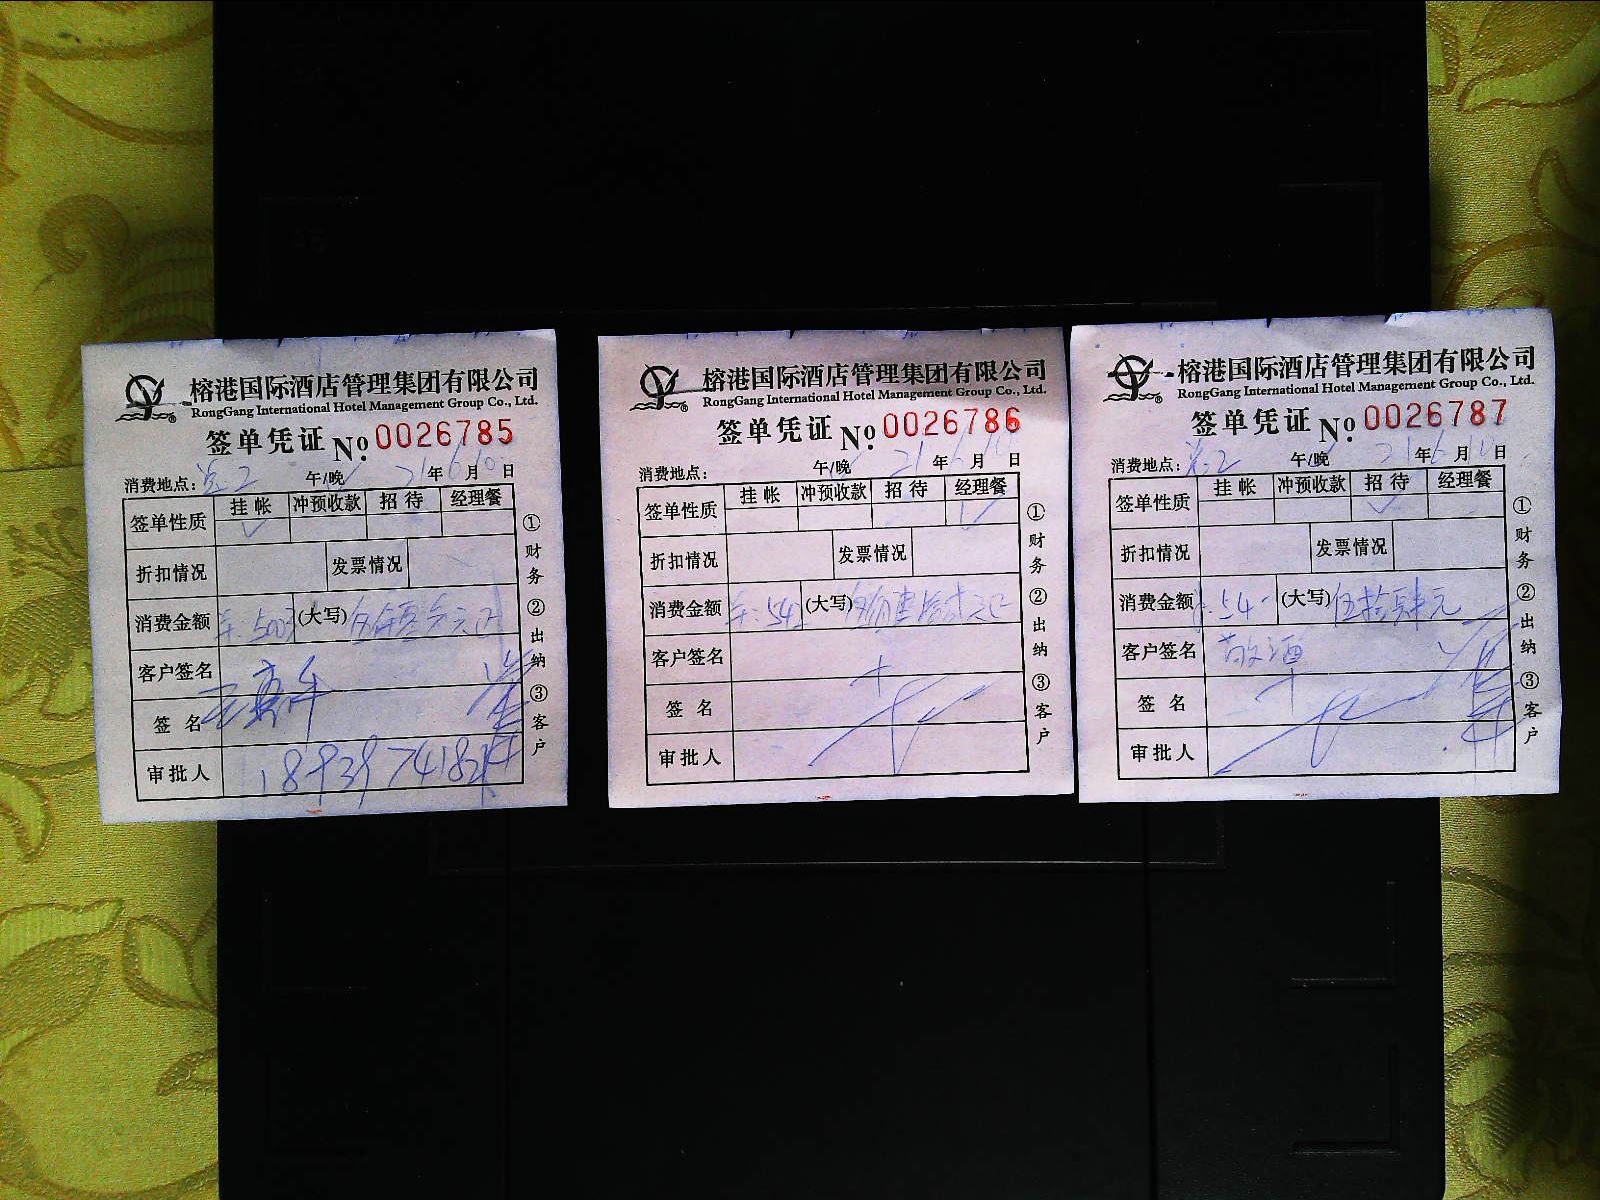 榕港国际酒店管理集团有限公司
RongGang International Hotel Management Group Co., Ltd.
签单凭证 No. 0026785
消费地点: 午/晚 21年6月10日
签单性质 挂帐 冲预收款 招待 经理餐
折扣情况 发票情况
消费金额 (大写)
客户签名
签名
审批人 18939741824
①财务 ②出纳 ③客户
榕港国际酒店管理集团有限公司
RongGang International Hotel Management Group Co., Ltd.
签单凭证 No. 0026786
消费地点: 午/晚 21年6月10日
签单性质 挂帐 冲预收款 招待 经理餐
折扣情况 发票情况
消费金额 (大写)
客户签名
签名
审批人
①财务 ②出纳 ③客户
榕港国际酒店管理集团有限公司
RongGang International Hotel Management Group Co., Ltd.
签单凭证 No. 0026787
消费地点: 午/晚 21年6月10日
签单性质 挂帐 冲预收款 招待 经理餐
折扣情况 发票情况
消费金额 54 (大写) 伍拾肆元
客户签名 敬酒
签名
审批人
①财务 ②出纳 ③客户